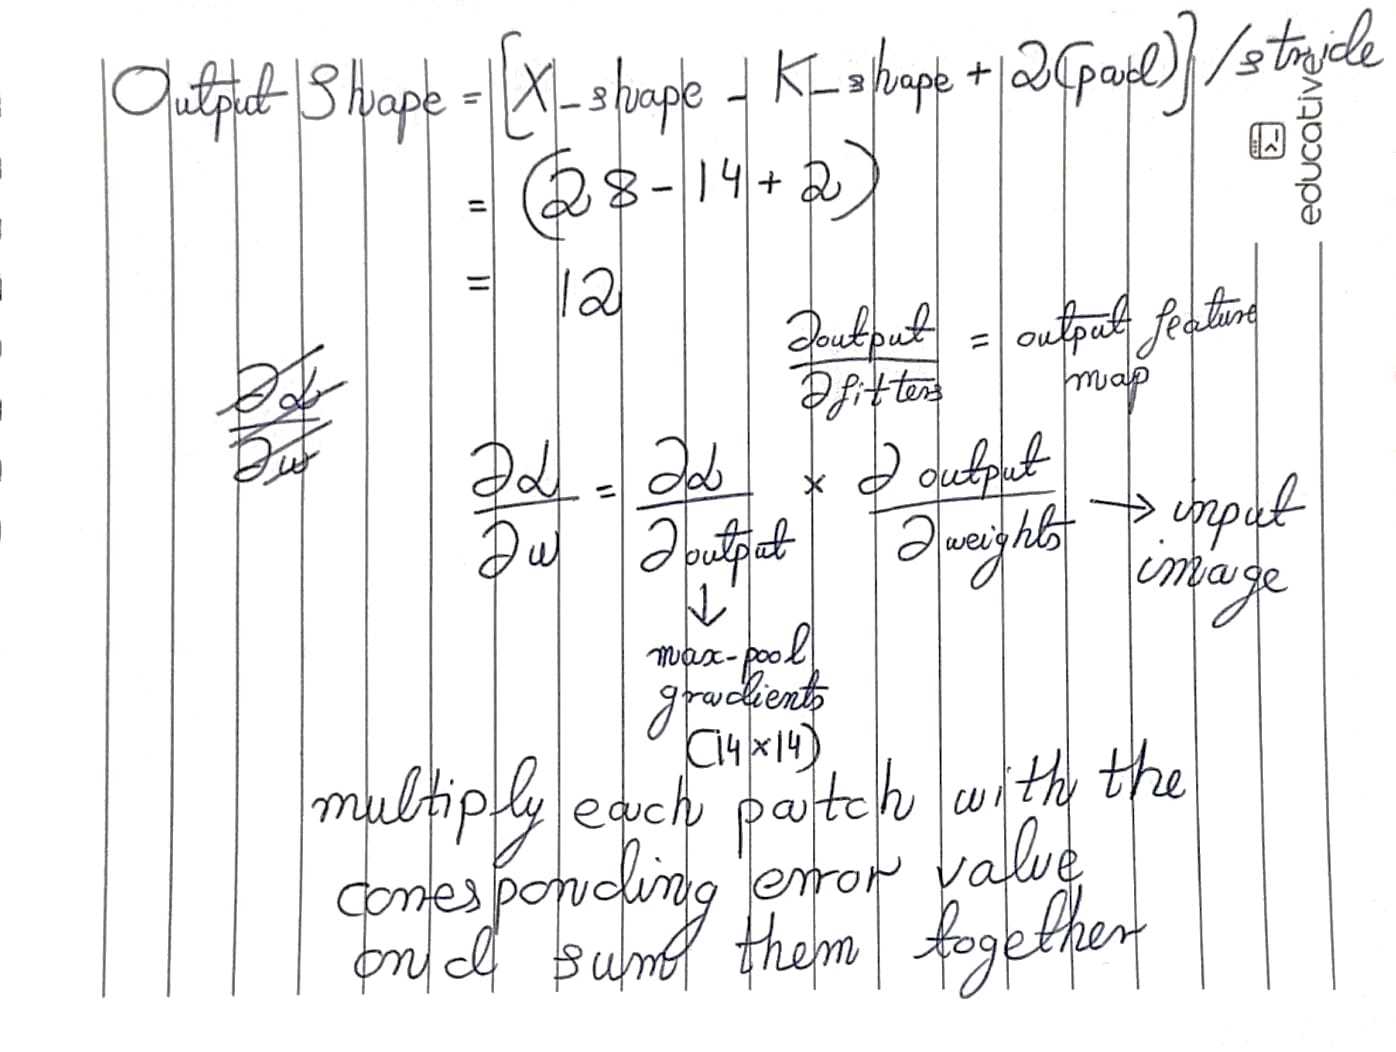 Output Shape = [X_shape - K_shape + 2(pad)] / stride
educative
= (28 - 14 + 2)
= 12
∂output / ∂filters = output feature map
∂L / ∂w
∂L / ∂w = ∂L / ∂output × ∂output / ∂weights → input image
↓
max-pool
gradients
(14×14)
multiply each patch with the
corresponding error value
and sum them together